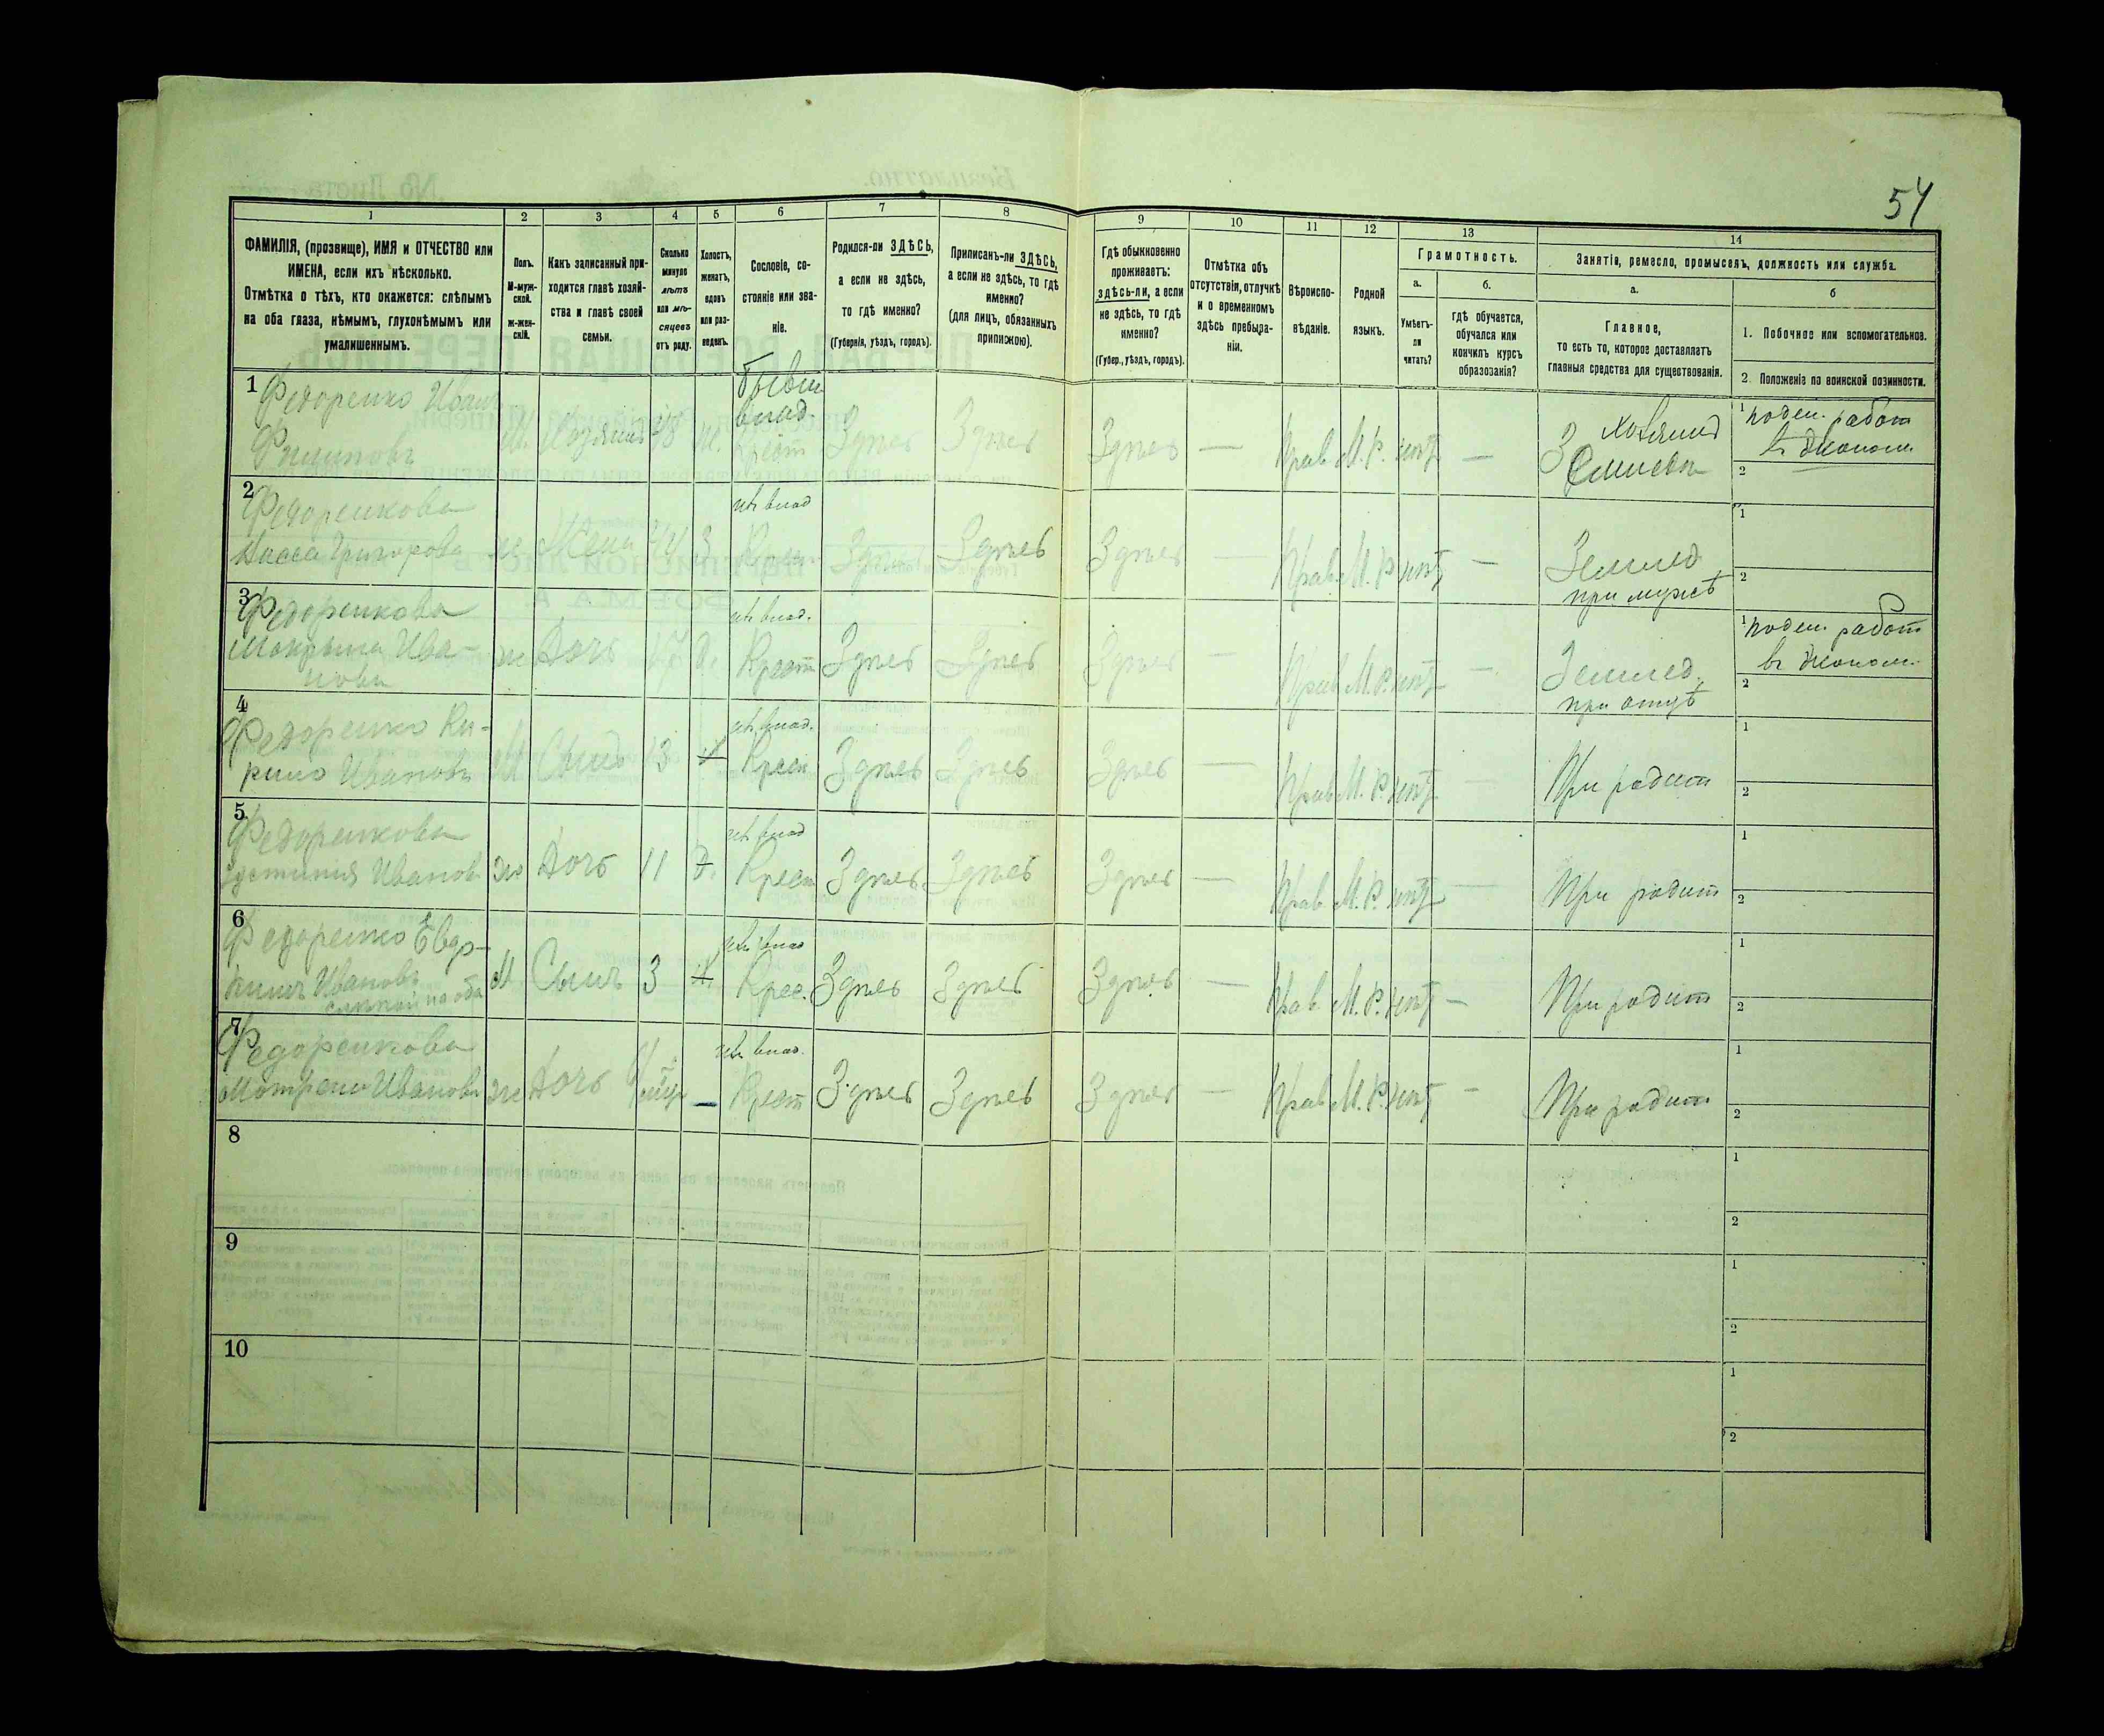 54
1 2 3 4 5 6 7 8 9 10 11 12 13 14
ФАМИЛІЯ, (прозвище), ИМЯ и ОТЧЕСТВО или
ИМЕНА, если ихъ нѣсколько.
Отмѣтка о тѣхъ, кто окажется: слѣпымъ
на оба глаза, нѣмымъ, глухонѣмымъ или
умалишеннымъ.
Полъ.
М-муж-
ской.
Ж-жен-
скій.
Какъ записанный при-
ходится главѣ хозяй-
ства и главѣ своей
семьи.
Сколько
минуло
лѣтъ
или мѣ-
сяцевъ
отъ роду.
Холостъ,
женатъ,
вдовъ
или раз-
веденъ.
Сословіе, со-
стояніе или зва-
ніе.
Родился-ли ЗДѢСЬ,
а если не здѣсь,
то гдѣ именно?
(Губернія, уѣздъ, городъ).
Приписанъ-ли ЗДѢСЬ,
а если не здѣсь, то гдѣ
именно?
(для лицъ, обязанныхъ
припискою).
Гдѣ обыкновенно
проживаетъ:
здѣсь-ли, а если
не здѣсь, то гдѣ
именно?
(Губер., уѣздъ, городъ).
Отмѣтка объ
отсутствіи, отлучкѣ
и о временномъ
здѣсь пребыва-
ніи.
Вѣроиспо-
вѣданіе.
Родной
языкъ.
Грамотность.
а.
Умѣетъ-
ли
читать?
б.
гдѣ обучается,
обучался или
кончилъ курсъ
образованія?
Занятіе, ремесло, промыселъ, должность или служба.
а.
Главное,
то есть то, которое доставляетъ
главныя средства для существованія.
б
1. Побочное или вспомогательное.
2. Положеніе по воинской повинности.
1 Федоренко Иванъ
Филиповъ
М. Хозяинъ 48 Ж. бывш
влад.
Крест Здѣсь Здѣсь Здѣсь — Прав М. Р. нѣт —
Хозяинъ
1 поден. работ
въ Эконом.
2
2 Федоренкова
Васса Григорова ж Жена 44 З из влад
Крест Здѣсь Здѣсь Здѣсь — Прав М. Р. нѣт —
Землед
при мужѣ
1
2
3 Федоренкова
Мокрына Ива-
нова
ж Дочь 17 Д. из влад.
Крест Здѣсь Здѣсь Здѣсь — Прав М. Р. нѣт —
Землед.
при отцѣ
1 поден. работ
въ Эконом.
2
4 Федоренко Ки-
рило Ивановъ
М Сынъ 13 из влад.
Крест Здѣсь Здѣсь Здѣсь — Прав М. Р. нѣт —
При родит
1
2
5 Федоренкова
Устинія Иванов ж Дочь 11 Д. из влад
Крест Здѣсь Здѣсь Здѣсь — Прав М. Р. нѣт —
При родит
1
2
6 Федоренко Евдо-
кимъ Ивановъ
слѣпой на оба
М Сынъ 3 из влад
Крес. Здѣсь Здѣсь Здѣсь — Прав М. Р. нѣт —
При родит
1
2
7 Федоренкова
Мотрена Иванова ж Дочь — из влад.
Крест Здѣсь Здѣсь Здѣсь — Прав М. Р. нѣт —
При родит
1
2
8
1
2
9
1
2
10
1
2